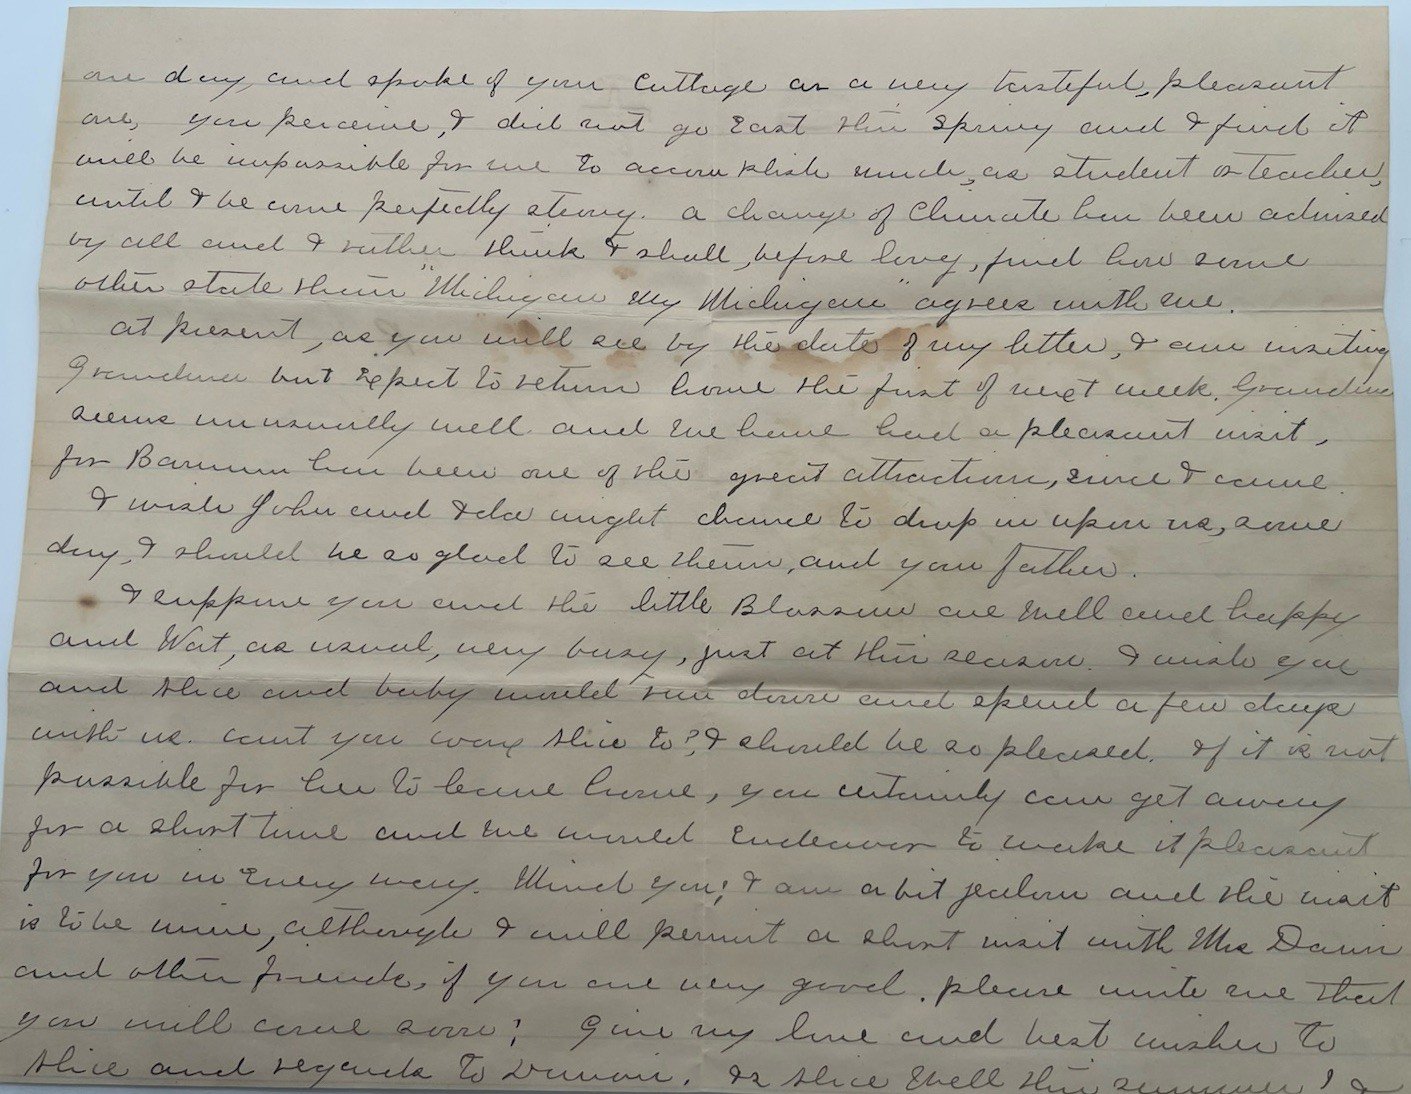 one day, and spoke of your Cottage as a very tasteful, pleasant
one, you perceive, I did not go East this Spring and I find it
will be impossible for me to accomplish much, as student or teacher,
until I become perfectly strong. A change of Climate has been advised
by all and I rather think I shall, before long, find how some
other state than "Michigan My Michigan" agrees with me.
At present, as you will see by the date of my letter, I am visiting
Grandma but expect to return home the first of next week. Grandma
seems unusually well and we have had a pleasant visit,
for Barnum has been one of the great attractions, since I came.
I wish John and Ida might chance to drop in upon us, some
day, I should be so glad to see them, and your father.
I suppose you and the little Blossom are well and happy
and Wat, as usual, very busy, just at this season. I wish you
and Alice and baby would run down and spend a few days
with us. cant you coax Alice to? I should be so pleased. If it is not
possible for her to leave home, you certainly can get away
for a short time and we would Endeavor to make it pleasant
for you in Every way. Mind you! I am a bit jealous and the visit
is to be mine, although I will permit a short visit with Mrs Davis
and other friends, if you are very good. please write me that
you will come soon! Give my love and best wishes to
Alice and regards to . Is Alice well this summer? I